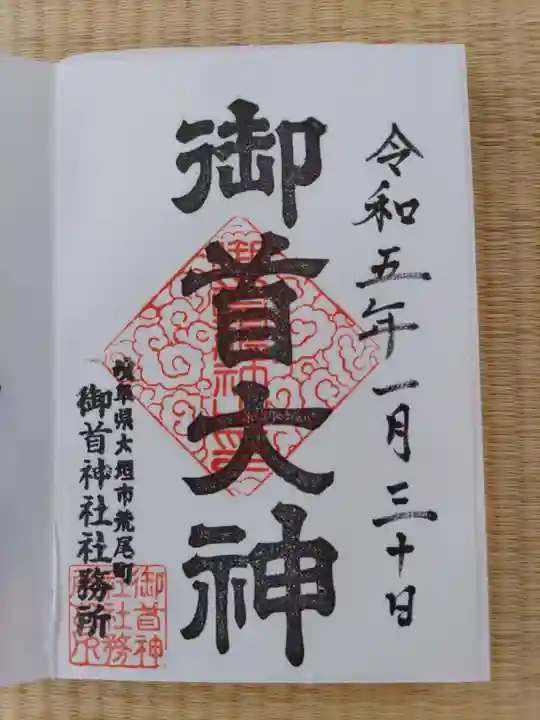 令和五年一月三十日
御首大神
岐阜県大垣市荒尾町
御首神社社務所
御首神
社社務
所印